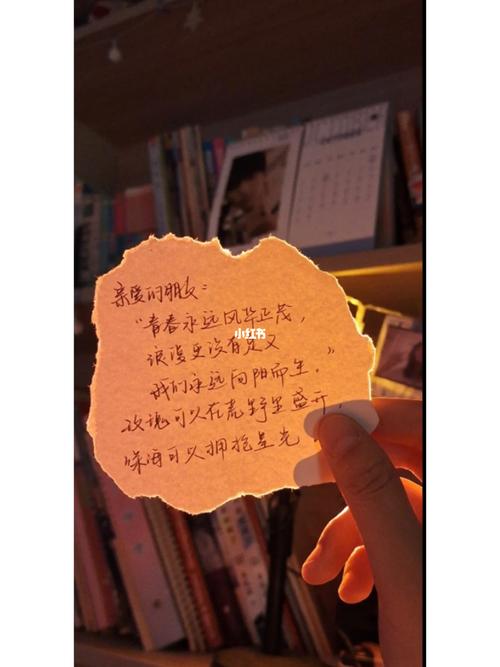 亲爱的朋友：
“青春永远风华正茂，
小红书
浪漫更没有定义
我们永远向阳而生。”
玫瑰可以在荒野里盛开，
深海可以拥抱星光